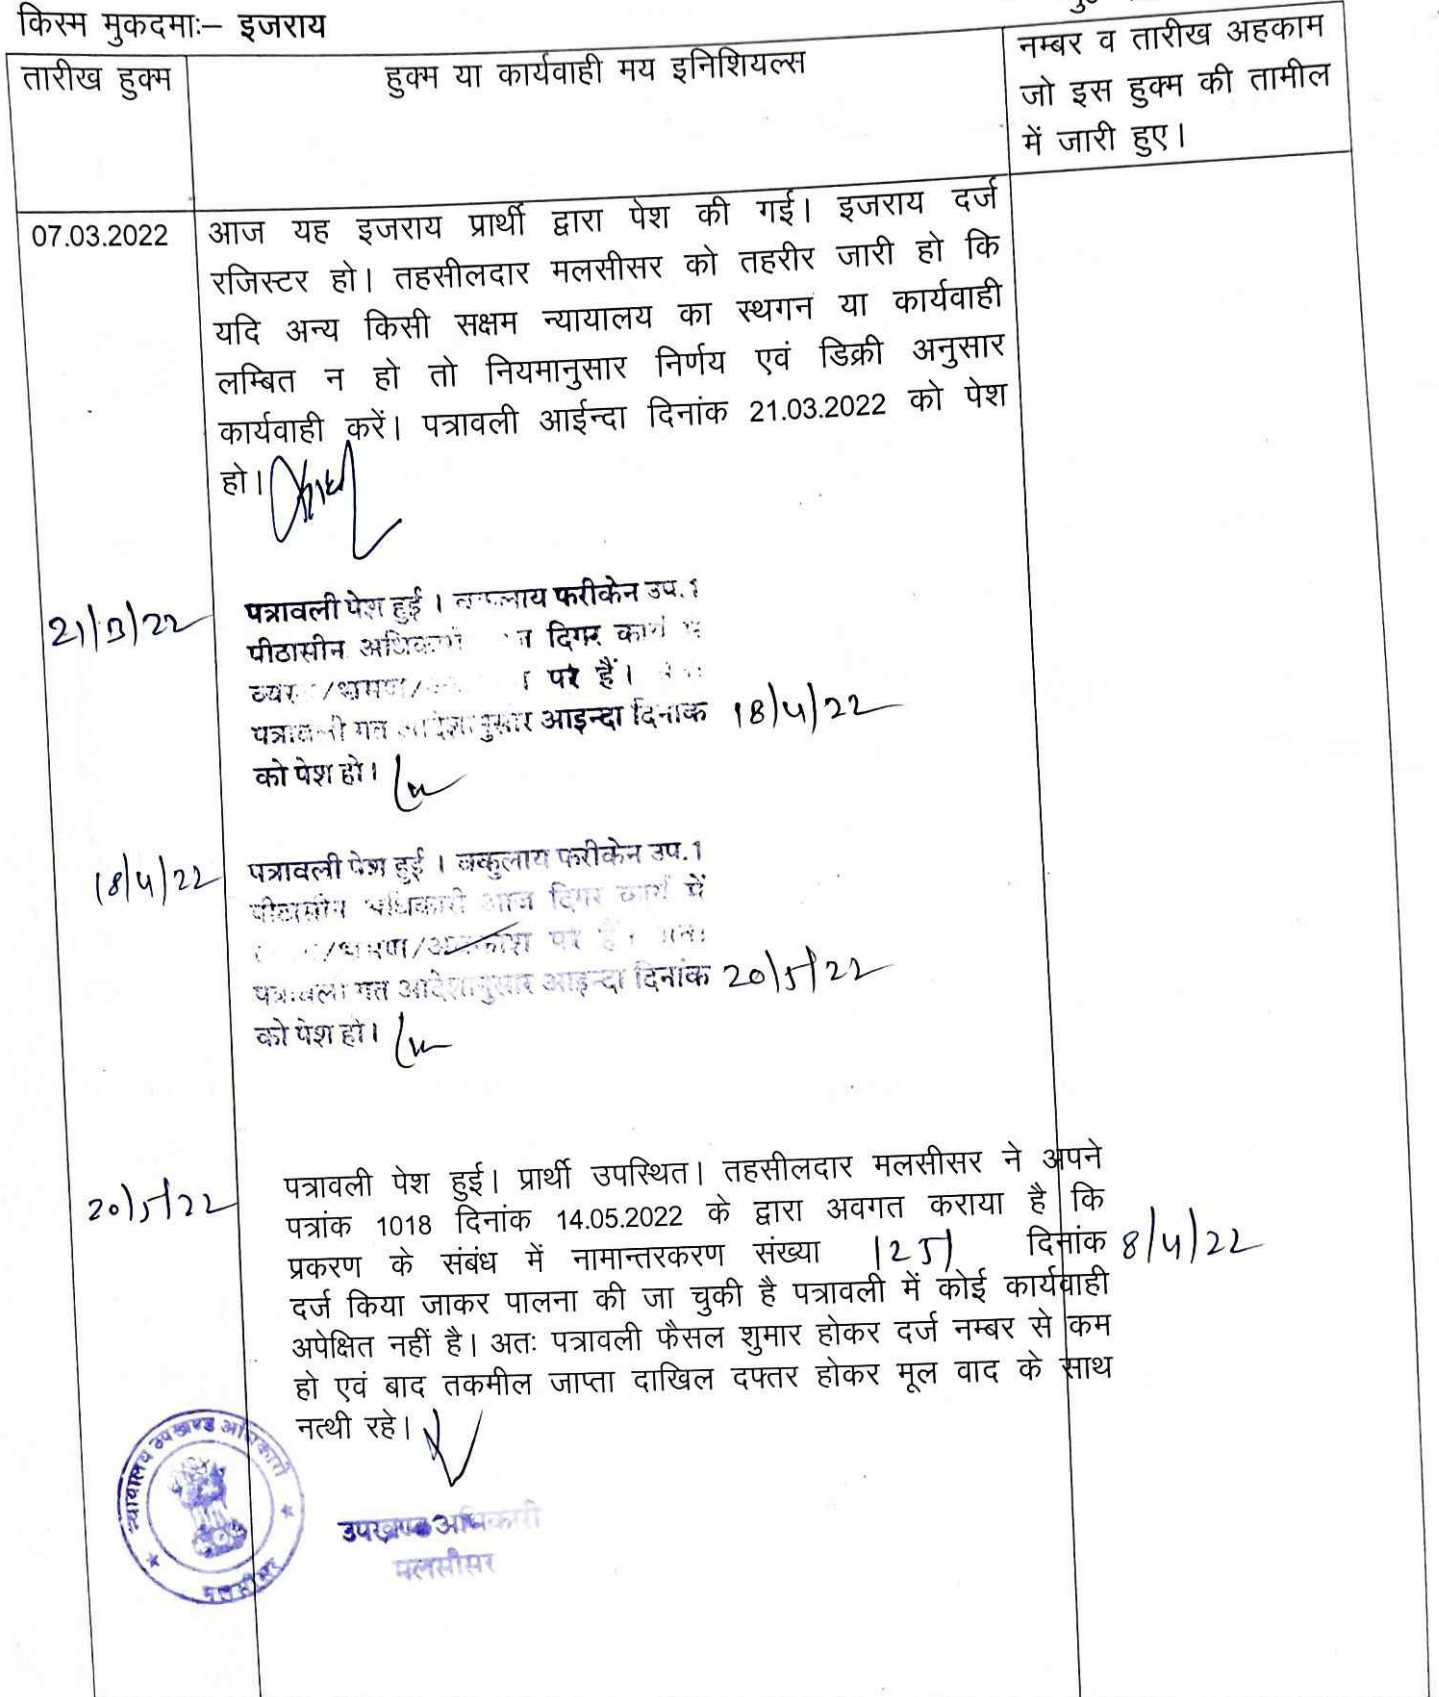 किस्म मुकदमाः– इजराय
तारीख हुक्म
हुक्म या कार्यवाही मय इनिशियल्स
नम्बर व तारीख अहकाम
जो इस हुक्म की तामील
में जारी हुए।
07.03.2022
आज यह इजराय प्रार्थी द्वारा पेश की गई। इजराय दर्ज
रजिस्टर हो। तहसीलदार मलसीसर को तहरीर जारी हो कि
यदि अन्य किसी सक्षम न्यायालय का स्थगन या कार्यवाही
लम्बित न हो तो नियमानुसार निर्णय एवं डिक्री अनुसार
कार्यवाही करें। पत्रावली आईन्दा दिनांक 21.03.2022 को पेश
हो।
21/3/22
पत्रावली पेश हुई। वकुलाय फरीकेन उप.1
पीठासीन अधिकारी दिगर कार्य
पर हैं।
पत्रावली गत आदेशानुसार आइन्दा दिनांक 18/4/22
को पेश हो।
18/4/22
पत्रावली पेश हुई। वकुलाय फरीकेन उप.1
पीठासीन अधिकारी आज दिगर कार्य में
/भ्रमण/अवकाश पर हैं। अतः
पत्रावली गत आदेशानुसार आइन्दा दिनांक 20/5/22
को पेश हो।
20/5/22
पत्रावली पेश हुई। प्रार्थी उपस्थित। तहसीलदार मलसीसर ने अपने
पत्रांक 1018 दिनांक 14.05.2022 के द्वारा अवगत कराया है कि
प्रकरण के संबंध में नामान्तरकरण संख्या 1251 दिनांक 8/4/22
दर्ज किया जाकर पालना की जा चुकी है पत्रावली में कोई कार्यवाही
अपेक्षित नहीं है। अतः पत्रावली फैसल शुमार होकर दर्ज नम्बर से कम
हो एवं बाद तकमील जाप्ता दाखिल दफ्तर होकर मूल वाद के साथ
नत्थी रहे।
न्यायालय उपखण्ड अधिकारी
मलसीसर
उपखण्ड अधिकारी
मलसीसर